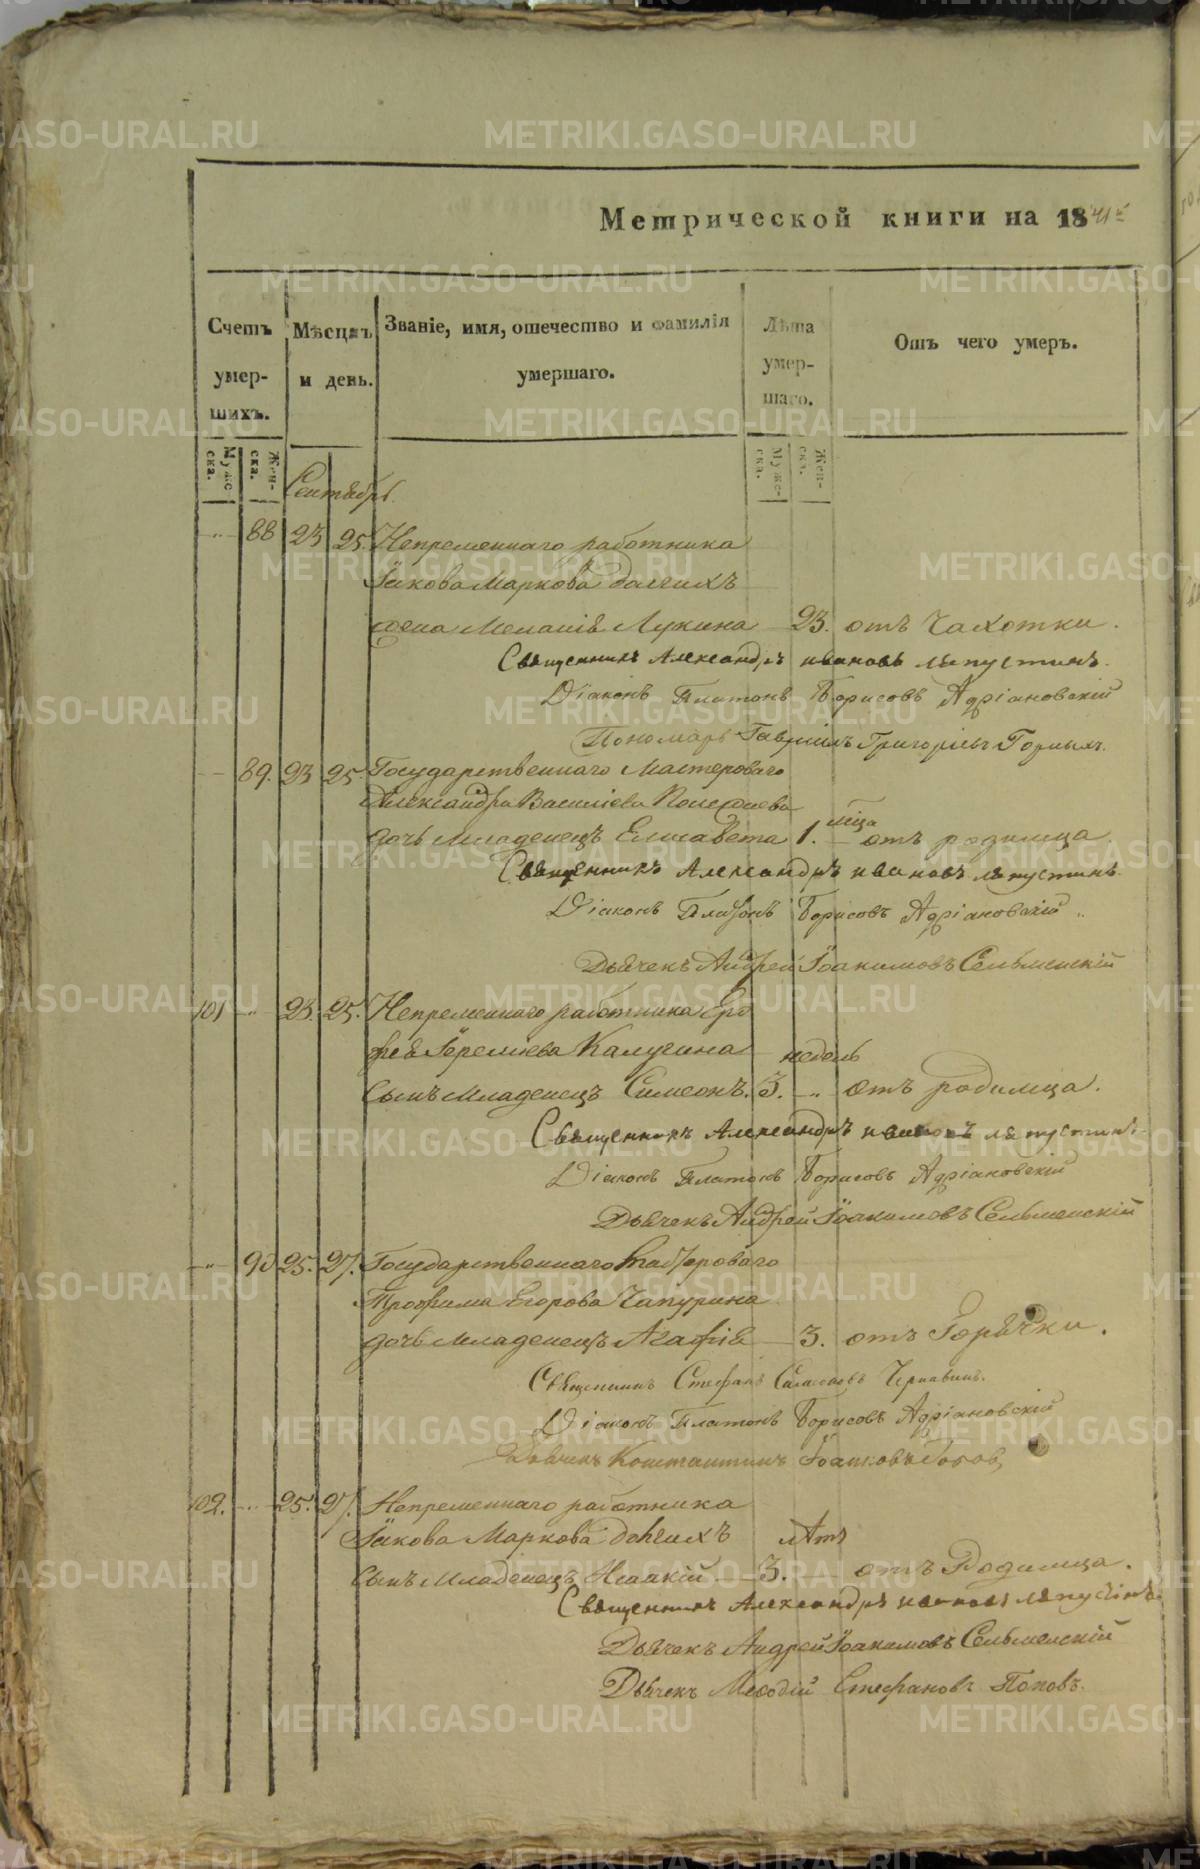 Метрической книги на 1841й
Счетъ умер- шихъ.
Мѣсяцъ и день.
Званіе, имя, отечество и фамилія умершаго.
Лѣта умер- шаго.
Отъ чего умеръ.
Муже ска.
Жен- ска.
Муже- ска.
Жен- ска.
Сентябрь
88 23 25. Непременнаго работника
Іакова Маркова Долгихъ
жена Меланія Лукина 23. отъ Чахотки.
Священникъ Александръ Ивановъ Ляпустинъ.
Діаконъ Платонъ Борисовъ Адріановскій
Пономарь Гавріилъ Григорьевъ Горныхъ.
89. 23 25 Государственнаго Мастероваго
Александра Василіева
мѣца
дочь младенецъ Елисавета 1. отъ родимца
Священникъ Александръ Ивановъ Ляпустинъ.
Діаконъ Платонъ Борисовъ Адріановскій
Дьячекъ Андрей Іоакимовъ Сельменскій
101 23. 25. Непременнаго работника Еро
фея Іереміева Калугина недель
сынъ младенецъ Симеонъ. 3. отъ родимца.
Священникъ Александръ Ивановъ Ляпустинъ.
Діаконъ Платонъ Борисовъ Адріановскій
Дьячекъ Андрей Іоакимовъ Сельменскій
90 25. 27. Государственнаго Мастероваго
Трофима Егорова Чапурина
дочь младенецъ Агафія 3. отъ Горячки.
Священникъ Стефанъ Чернавинъ.
Діаконъ Платонъ Борисовъ Адріановскій
Дьячекъ Константинъ Попов,
102. 25. 27. Непременнаго работника
Іакова Маркова Долгихъ лѣтъ
сынъ младенецъ Исаакій 3. отъ Родимца.
Священникъ Александръ Ивановъ Ляпустинъ.
Дьячекъ Андрей Іоакимовъ Сельменскій
Дьячекъ Меѳодій Стефановъ Поповъ.
METRIKI.GASO-URAL.RU